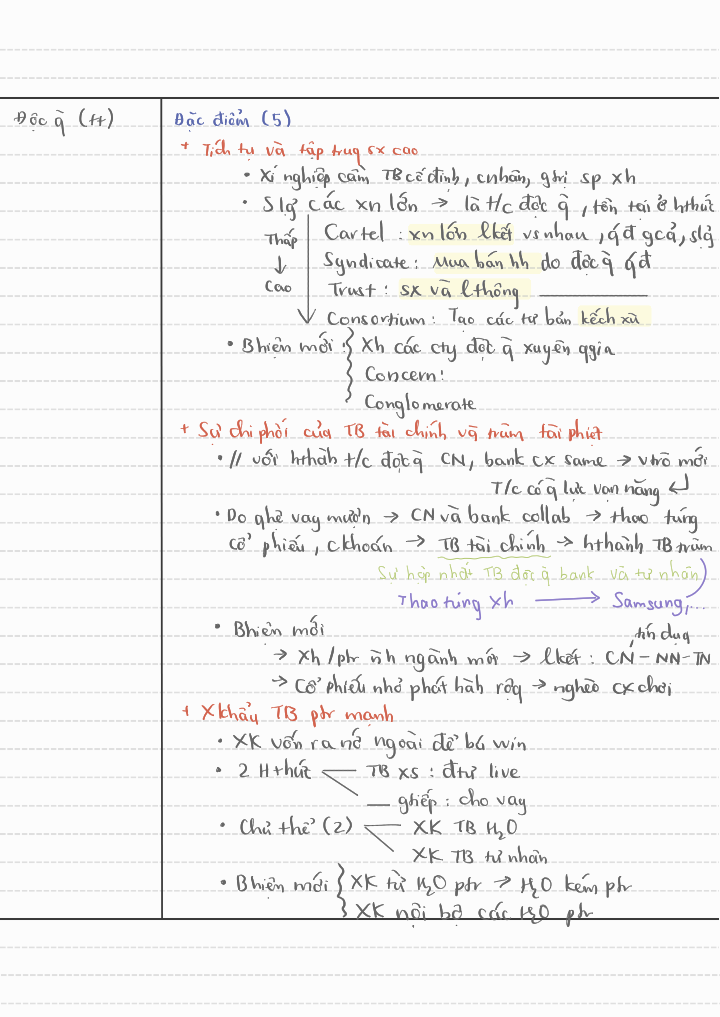 Độc q̀ (tt)
Đặc điểm (5)
+ Tích tụ và tập trug sx cao
• Xí nghiệp cần TB cố định, cnhân, gtrị sp xh
• Slg các xn lớn → là t/c độc q̀, tồn tại ở hthức
Thấp ↓ Cao
Cartel : xn lớn lkết vs nhau, q́đ gcả, slg
Syndicate : Mua bán hh do độc q̀ q́đ
Trust : sx và lthông ———
Consortium : Tạo các tư bản kếch xù
• Bhiện mới : Xh các cty độc q̀ xuyên qgia
Concern :
Conglomerate
+ Sự chi phối của TB tài chính và trùm tài phiệt
• // với hthàh t/c độc q̀ CN, bank cx same → vtrò mới
T/c có q̀ lực vạn năng ↵
• Do ghề vay mượn → CN và bank collab → thao túng
cổ phiếu, ckhoán → TB tài chính → hthành TB trùm
Sự hợp nhất TB độc q̀ bank và tư nhân
Thao túng xh → Samsung,...
• Bhiện mới
, tín dụg
→ Xh/ptr ǹh ngành mới → lkết : CN – NN – TN
→ Cổ phiếu nhỏ phát hàh rộg → nghèo cx chơi
+ Xkhẩu TB ptr mạnh
• XK vốn ra nở ngoài để bủ win
• 2 Hthức — TB xs : đtư live
— gtiếp : cho vay
• Chủ thể (2) — XK TB H₂O
XK TB tư nhân
• Bhiện mới XK từ H₂O ptr → H₂O kém ptr
XK nội bộ các H₂O ptr